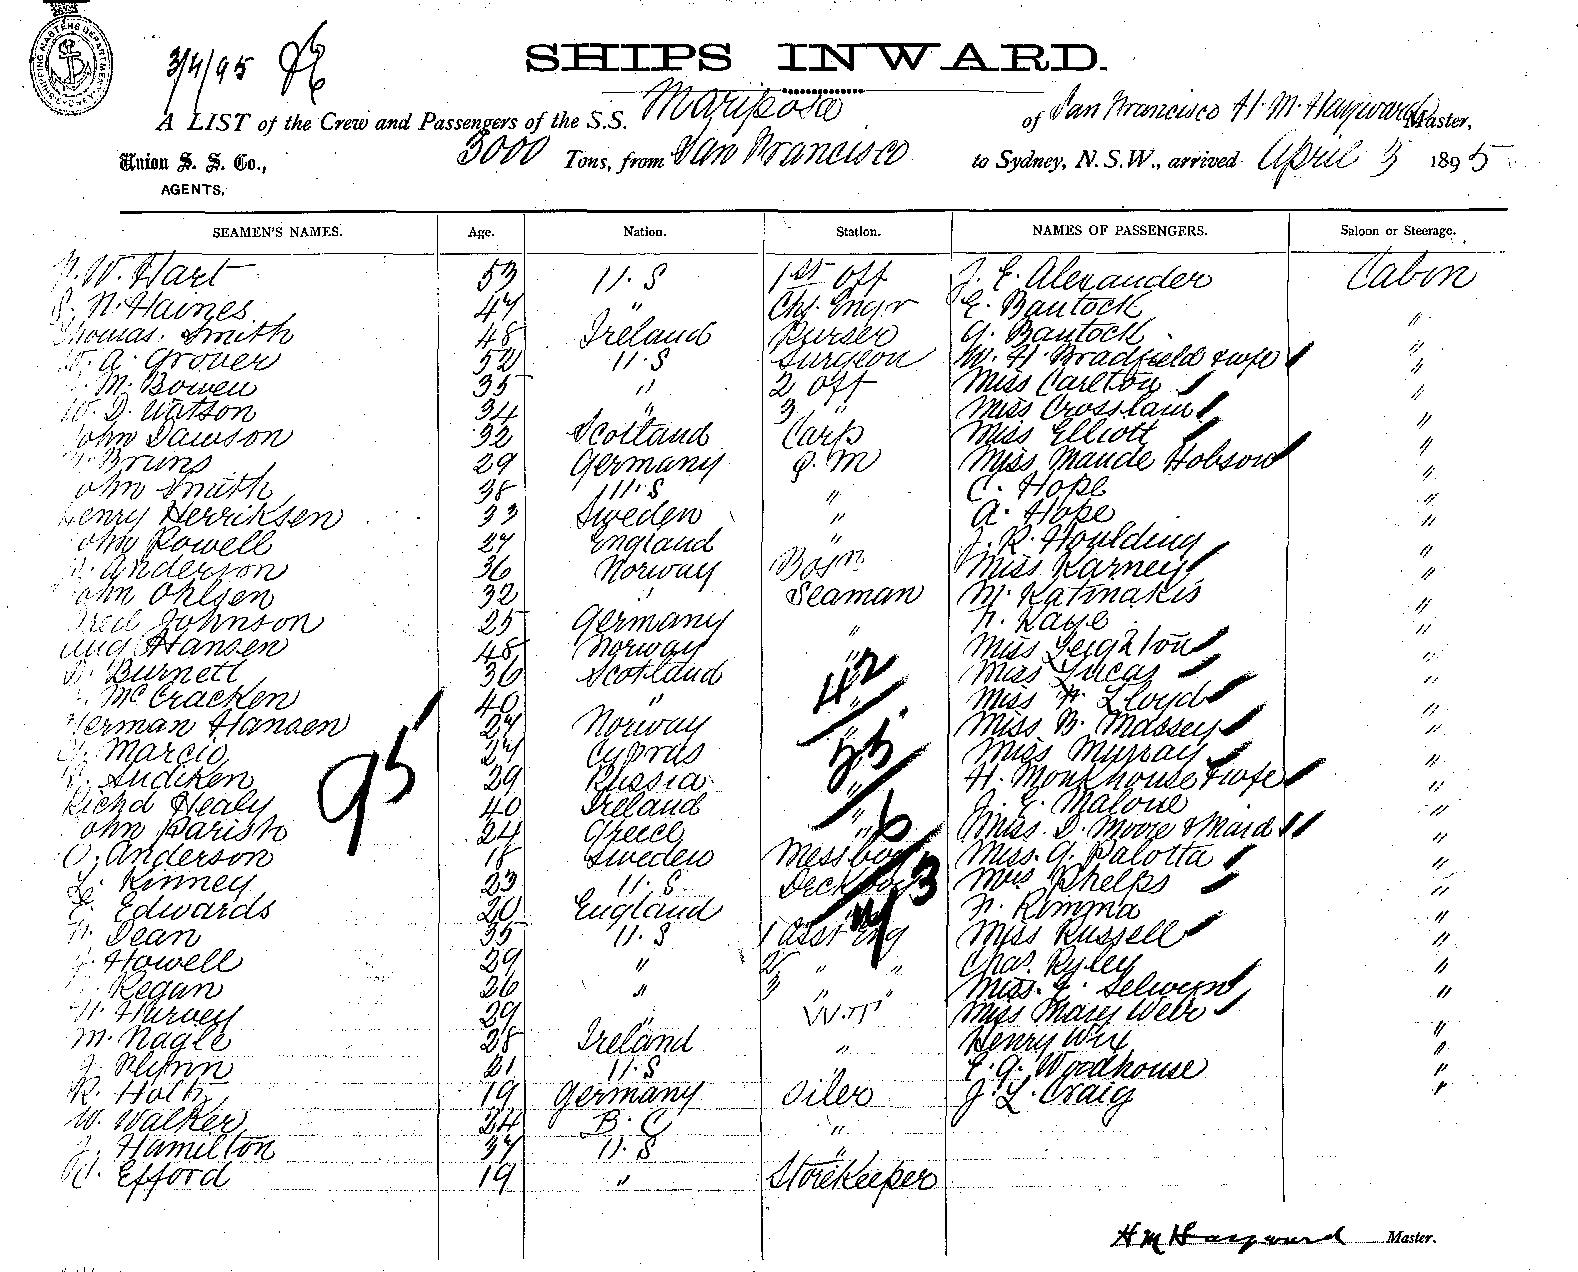 SHIPPING MASTERS DEPARTMENT
3/4/95
SHIPS INWARD.
A LIST of the Crew and Passengers of the S.S. Mariposa of San Francisco H. M. Hayward Master,
Union S. S. Co., AGENTS. 3000 Tons, from San Francisco to Sydney, N.S.W., arrived April 3 1895
SEAMEN'S NAMES. Age. Nation. Station. NAMES OF PASSENGERS. Saloon or Steerage.
W. Hart 53 U.S 1st Off J. E. Alexander Cabin
N. Haines 47 " Chf. Engr E. Bantock "
Thomas Smith 48 Ireland Purser G. Bantock "
W. A. Grover 52 U.S Surgeon M. H. Bradfield & wife "
M. Bowen 35 " 2 Off Miss Carlton "
W. D. Watson 34 " 3 " Miss Crosslain "
John Dawson 32 Scotland Carp Miss Elliott "
Bruns 29 Germany Q. M Miss Maude Hobson "
John Smith 38 U.S " C. Hope "
Henry Herriksen 33 Sweden " A. Hope "
John Powell 27 England " J. R. Houlding "
Anderson 36 Norway Bosn Miss Karney "
John Ohlsen 32 " Seaman M. Katinakis "
Fred Johnson 25 Germany " N. Kaye "
Aug Hansen 48 Norway " Miss Leighton "
Burnett 36 Scotland Miss Lucas "
McCracken 40 " Miss H. Lloyd "
Herman Hansen 27 Norway " Miss B. Massey "
Marcio 27 Cyprus Miss Murray "
Audiken 29 Russia " H. Monkhouse & wife "
Richd Healy 40 Ireland " J. E. Malone "
John Parish 24 Greece Miss. D. Moore & Maid "
O. Anderson 18 Sweden Messboy Miss. G. Palotta "
L. Kinney 23 U.S. Deckboy Miss Phelps "
E. Edwards 20 England " N. Rimma "
Dean 35 U.S 1 Asst Eng Miss Russell "
Howell 29 " 2 " " Chas. Ryley "
Regan 26 " 3 " " Miss. J. Selwyn "
H. Harvey 29 " W.T Miss Mary Weir "
M. Nagle 28 Ireland " Henry Wix "
J. Flynn 21 U.S E. G. Woodhouse "
R. Holk 19 Germany Oiler J. L. Craig "
W. Walker 24 B. C "
J. Hamilton 37 U.S "
Efford 19 " Storekeeper
95
42
33
6
13
94
H M Hayward Master.